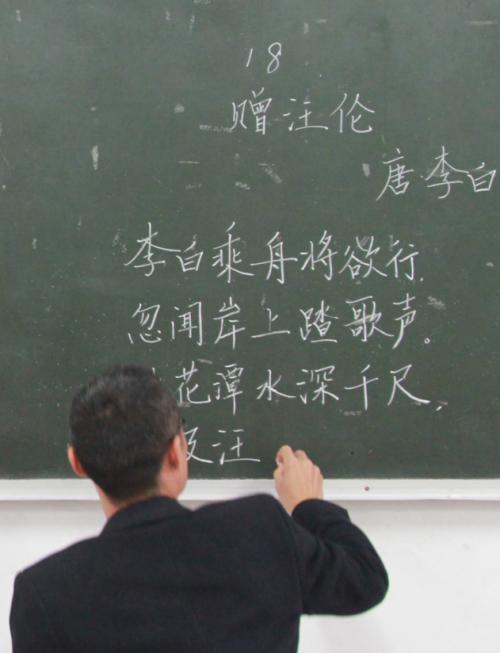 18
赠汪伦
唐·李白
李白乘舟将欲行,
忽闻岸上踏歌声。
花潭水深千尺,
及汪